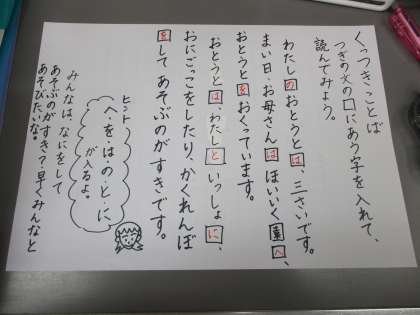 くっつきことば
つぎの文の□にあう字を入れて、
読んでみよう。
わたしのおとうとは、三さいです。
まい日、お母さんはほいいく園へ、
おとうとをおくっています。
おとうとはわたしといっしょに、
おにごっこをしたり、かくれんぼ
をしてあそぶのがすきです。
ヒント
へ・を・は・の・と・に
が入るよ。
みんなは、なにをして
あそぶのがすき？早くみんなと
あそびたいな。